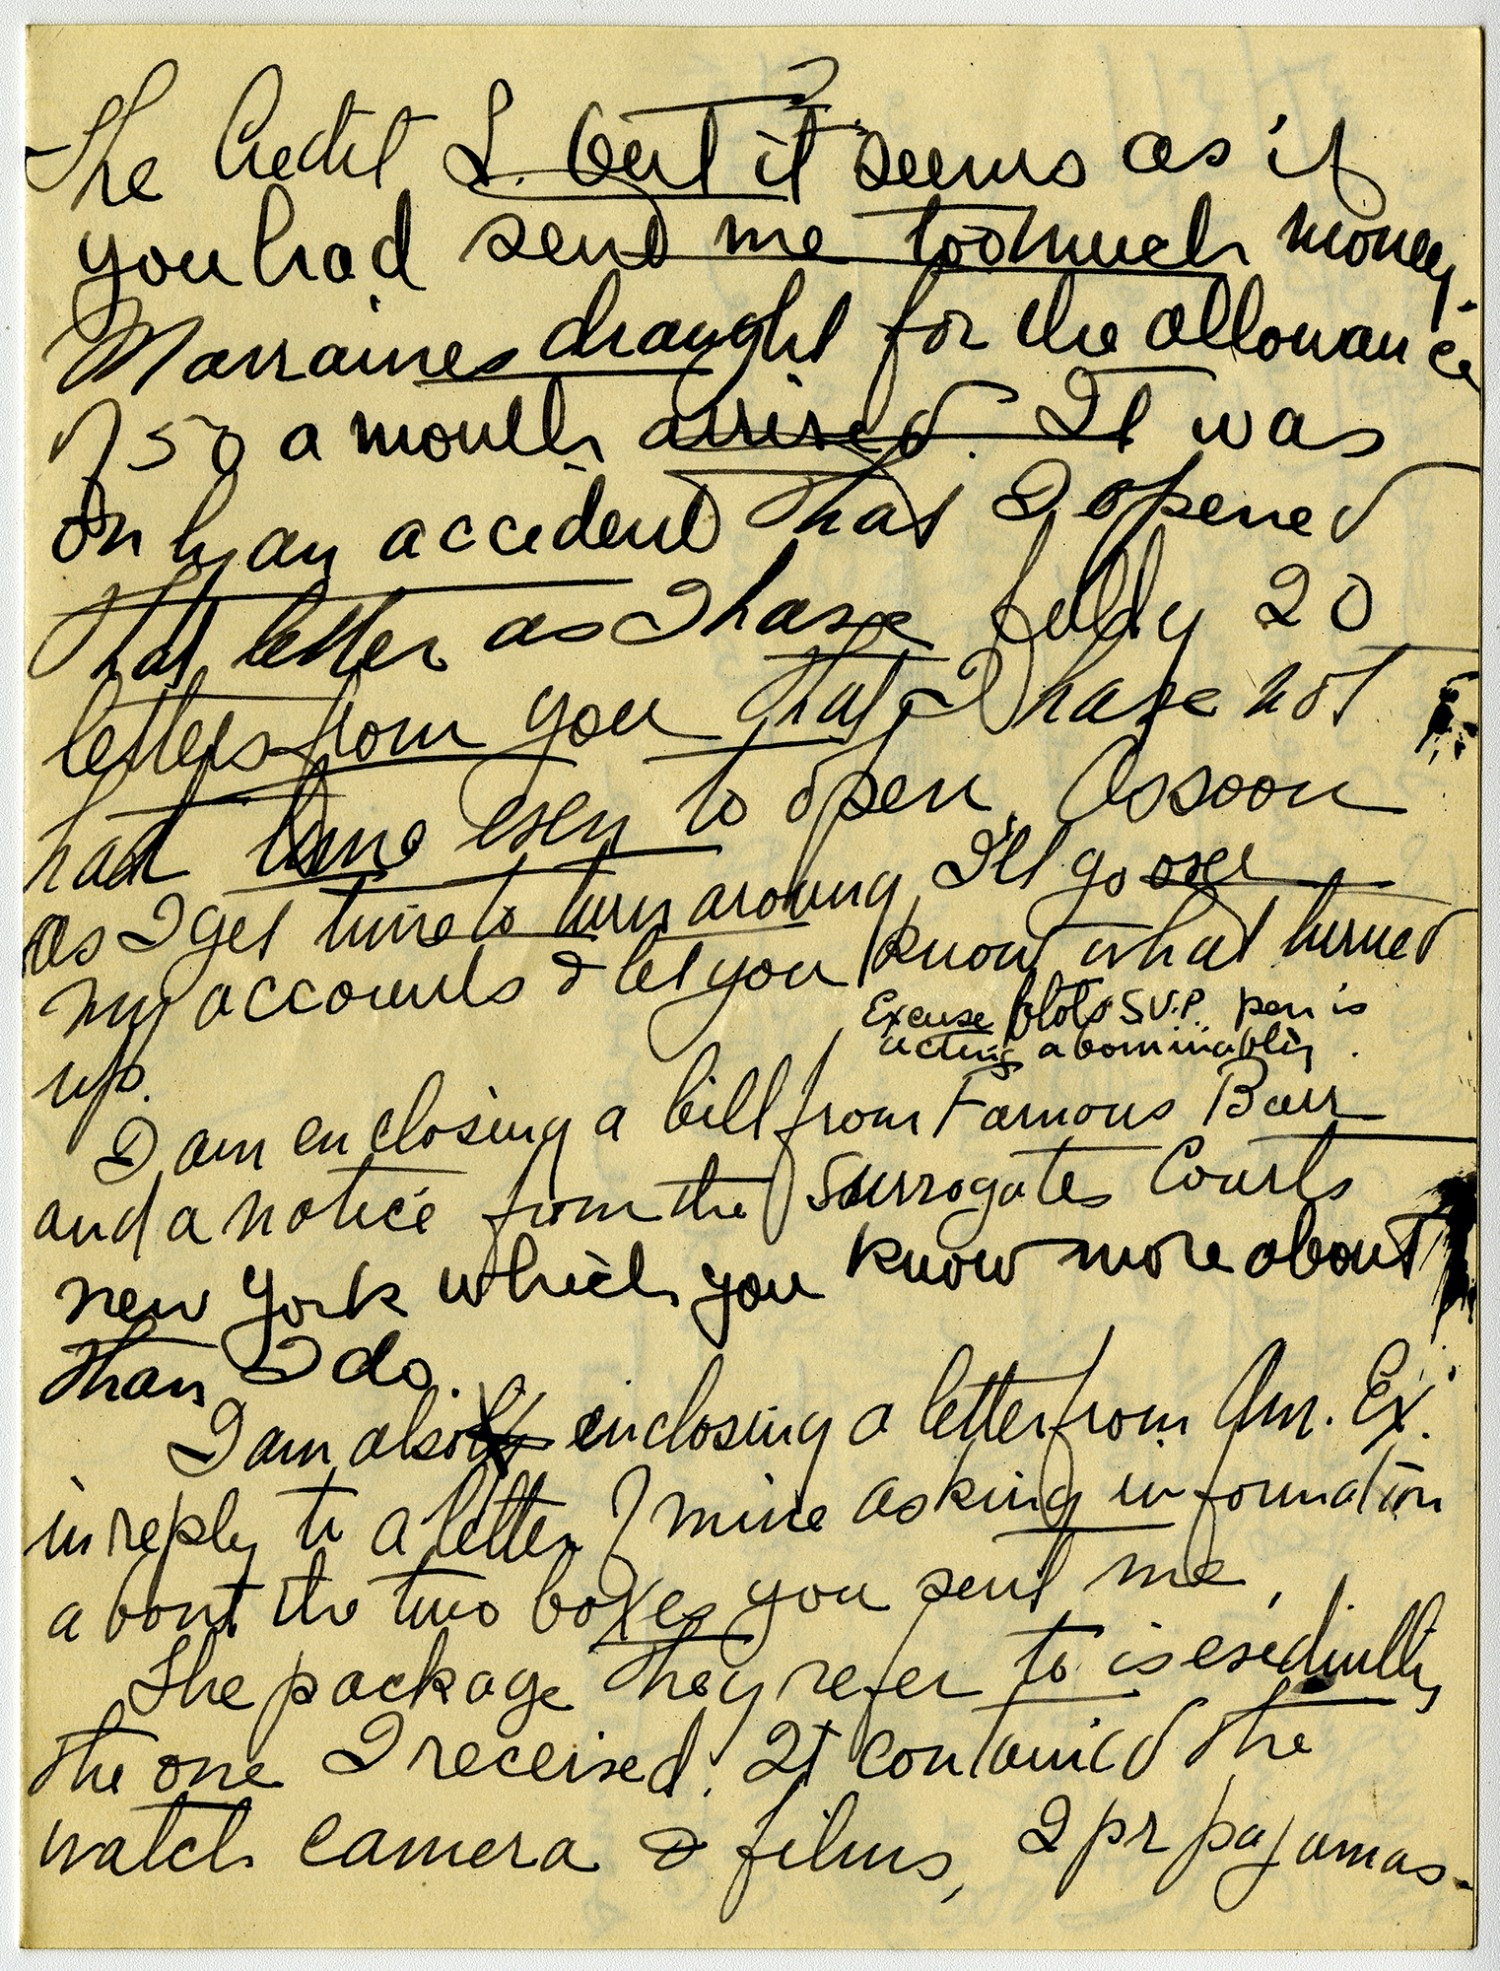 The Credit L. but it seems as if
you had send me too much money.
Marraines draught for the allowance
of 50 a month arrived. It was
only an accident that I opened
that letter as I have fully 20
letters from you that I have not
had time even to open. As soon
as I get time to turn around I'll go over
my accounts & let you know what turned
up.
Excuse blots S.V.P. pen is
acting abominably.
I am enclosing a bill from Famous Barr
and a notice from the Surrogates Courts
new York which you know more about
than I do.
I am also enclosing a letter from Am. Ex.
in reply to a letter of mine asking information
about the two boxes you sent me.
The package they refer to is evidently
the one I received. It contained the
watch camera & films, 2 pr pajamas-